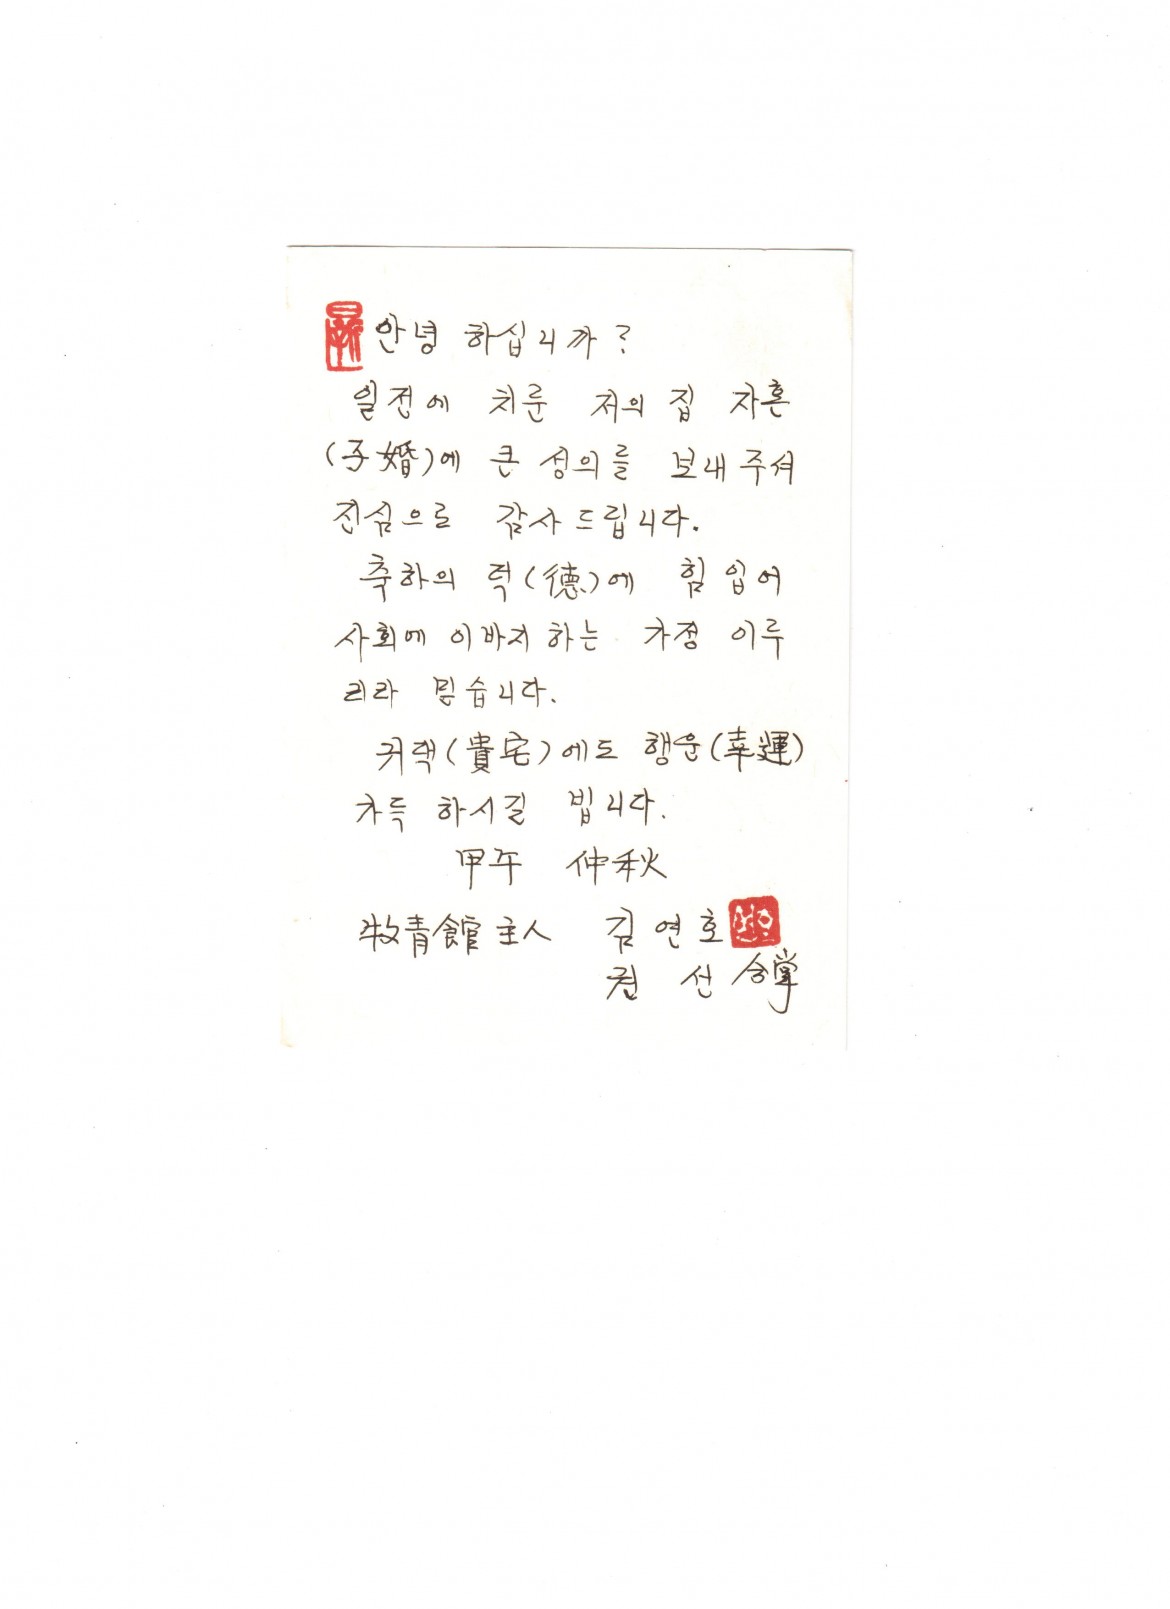 안녕 하십니까?
일전에 치룬 저의 집 자혼
(子婚)에 큰 성의를 보내주셔
진심으로 감사드립니다.
축하의 덕(德)에 힘입어
사회에 이바지하는 가정 이루
리라 믿습니다.
귀댁(貴宅)에도 행운(幸運)
가득 하시길 빕니다.
甲午 仲秋
牧青館主人 김연호
권 선 合掌